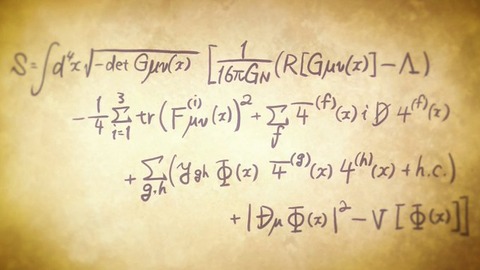 S = ∫d⁴x √-det Gμν(x) [ 1/16πG_N (R[Gμν(x)] - Λ)
- 1/4 Σ_{i=1}^{3} tr(F_{μν}^{(i)}(x))² + Σ_f ψ̄^{(f)}(x) i D̸ ψ^{(f)}(x)
+ Σ_{g,h} (y_{gh} Φ(x) ψ̄^{(g)}(x) ψ^{(h)}(x) + h.c.)
+ |D_μ Φ(x)|² - V[Φ(x)]]